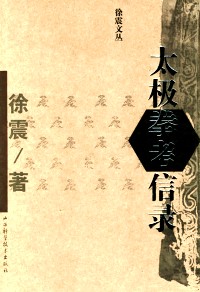 徐震文丛
太极拳考信录
徐震/著
山西科学技术出版社